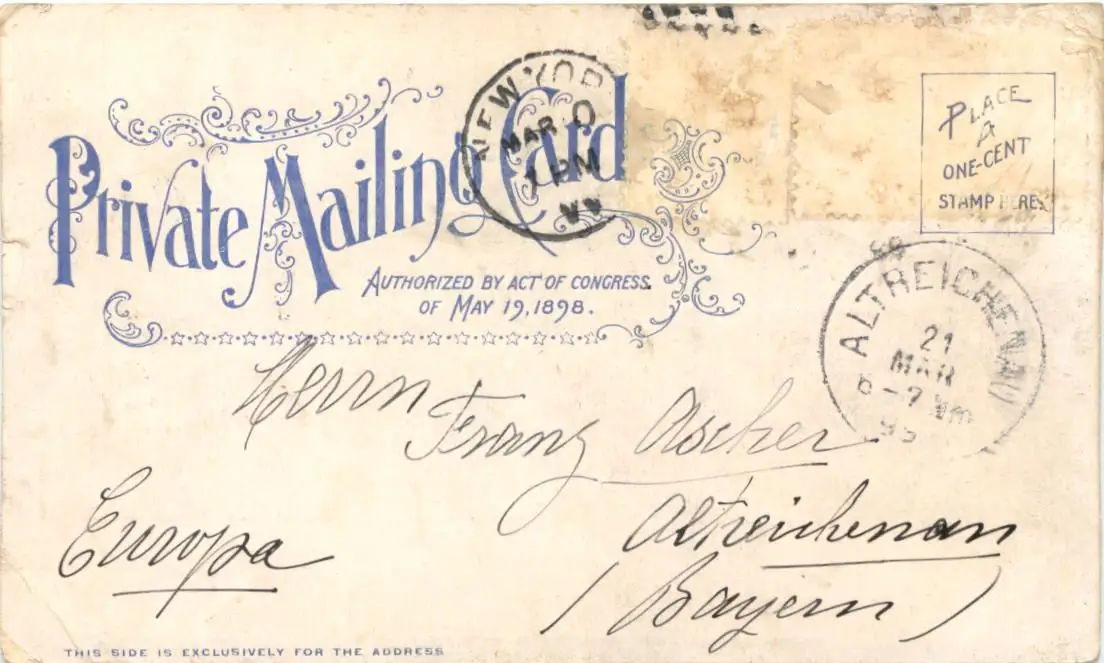 Private Mailing Card
AUTHORIZED BY ACT OF CONGRESS
OF MAY 19, 1898.
NEW YOR
MAR 0
1 PM
PLACE
A
ONE-CENT
STAMP HERE
ALTREICHENAU
21
MAR
6-7 Vm
Herrn
Franz Ascher
Altreichenau
Europa
(Bayern)
THIS SIDE IS EXCLUSIVELY FOR THE ADDRESS